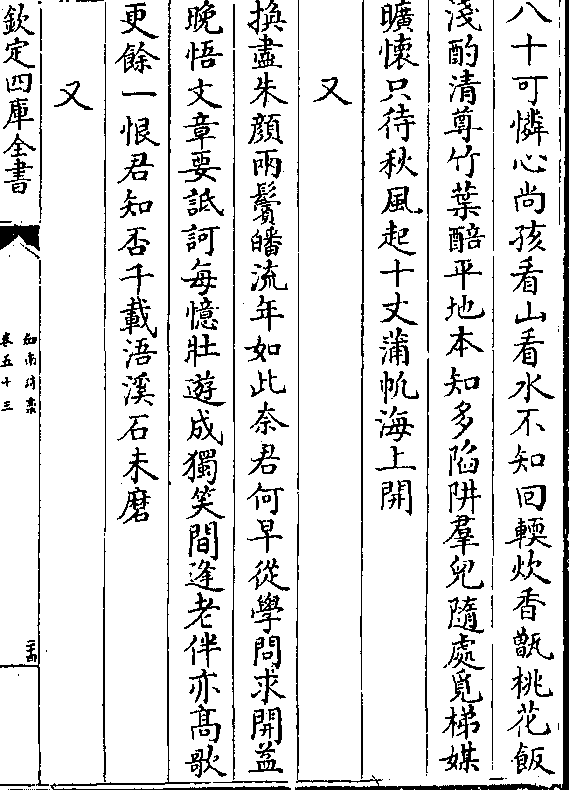 八十可憐心尚孩看山看水不知回輭炊香甑桃花飯
淺酌清尊竹葉醅平地本知多陷阱羣兒隨處覓梯媒
曠懷只待秋風起十丈蒲帆海上開
又
換盡朱顔兩鬢皤流年如此奈君何早從學問求開益
晚悟文章要詆訶每憶壯遊成獨笑間逢老伴亦髙歌
更餘一恨君知否千載浯溪石未磨
又
欽定四庫全書
劍南詩槀
卷五十三